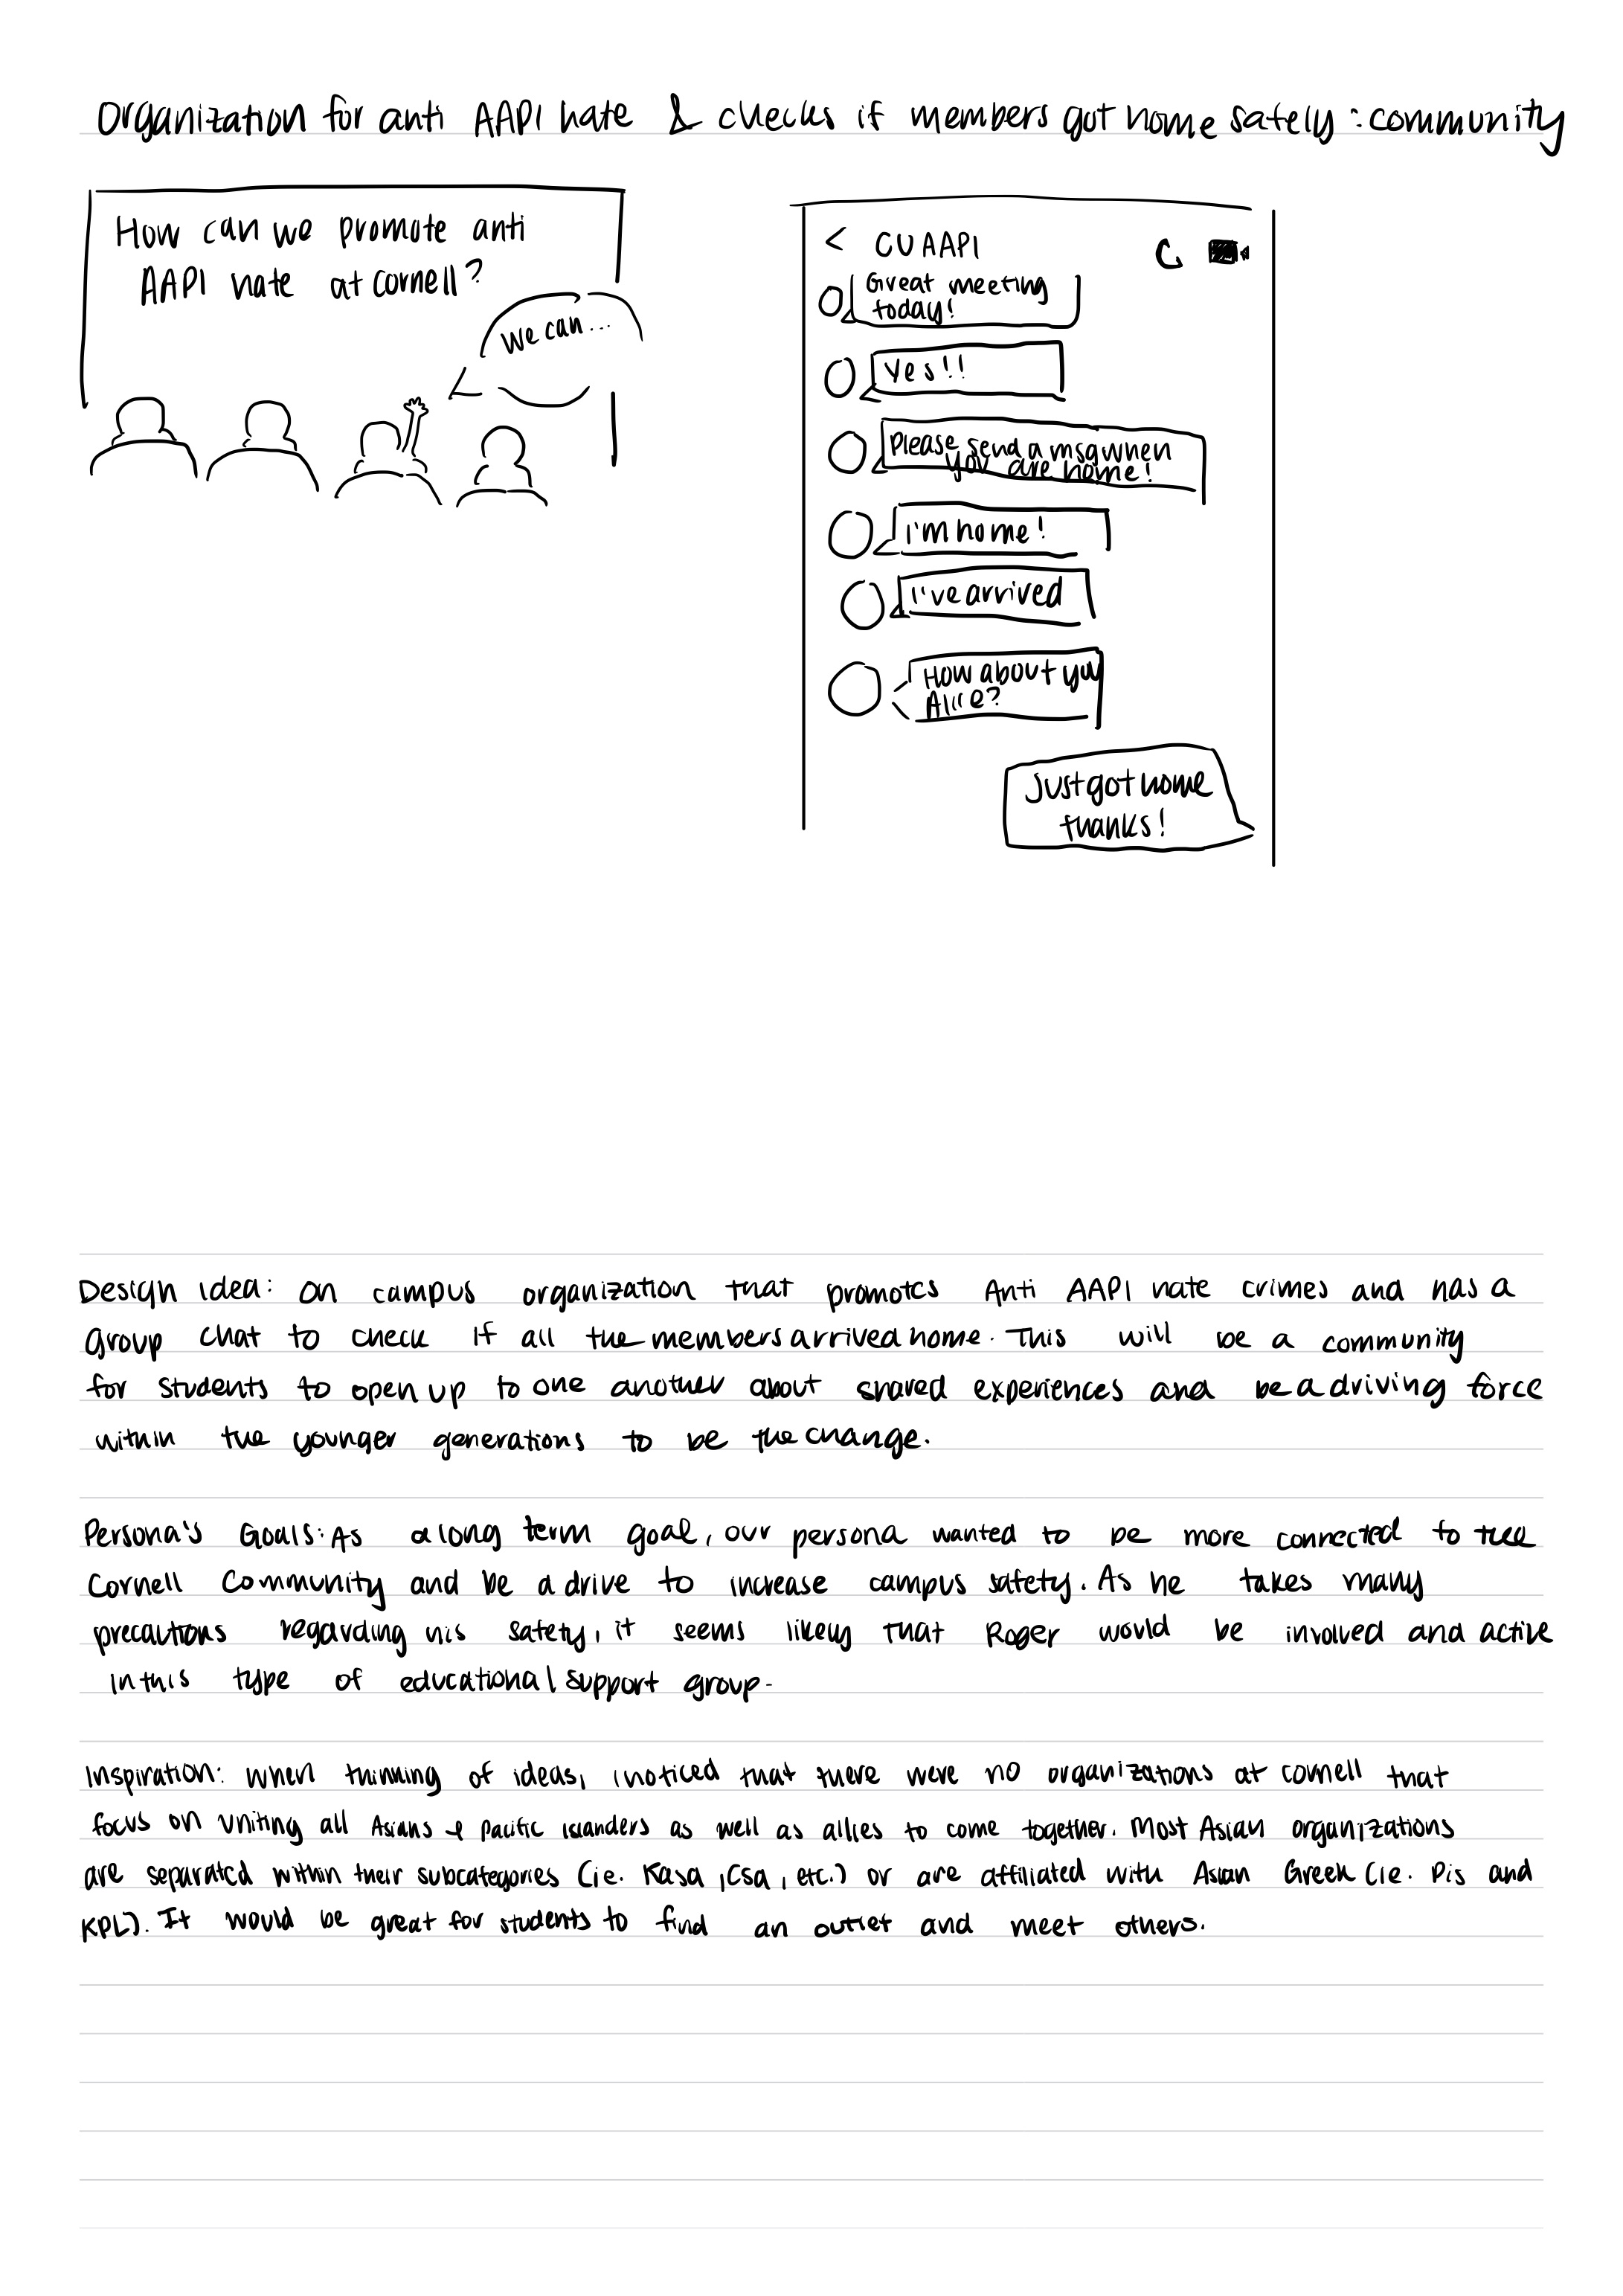 Organization for anti AAPI hate & checks if members got home safely : community
How can we promote anti
AAPI hate at cornell?
We can...
< CU AAPI
Great meeting
today!
Yes!!
Please send a msg when
you are home!
I'm home!
I've arrived
How about you
Alice?
Just got home
thanks!
Design idea: On campus organization that promotes Anti AAPI hate crimes and has a
group chat to check if all the members arrived home. This will be a community
for students to open up to one another about shared experiences and be a driving force
within the younger generations to be the change.
Persona's Goals: As a long term goal, our persona wanted to be more connected to the
Cornell Community and be a drive to increase campus safety. As he takes many
precautions regarding his safety, it seems likely that Roger would be involved and active
in this type of educational support group.
Inspiration: When thinking of ideas, I noticed that there were no organizations at cornell that
focus on uniting all Asians & Pacific Islanders as well as allies to come together. Most Asian organizations
are separated within their subcategories (ie. Kasa, Csa, etc.) or are affiliated with Asian Greek (ie. Pis and
KPL). It would be great for students to find an outlet and meet others.